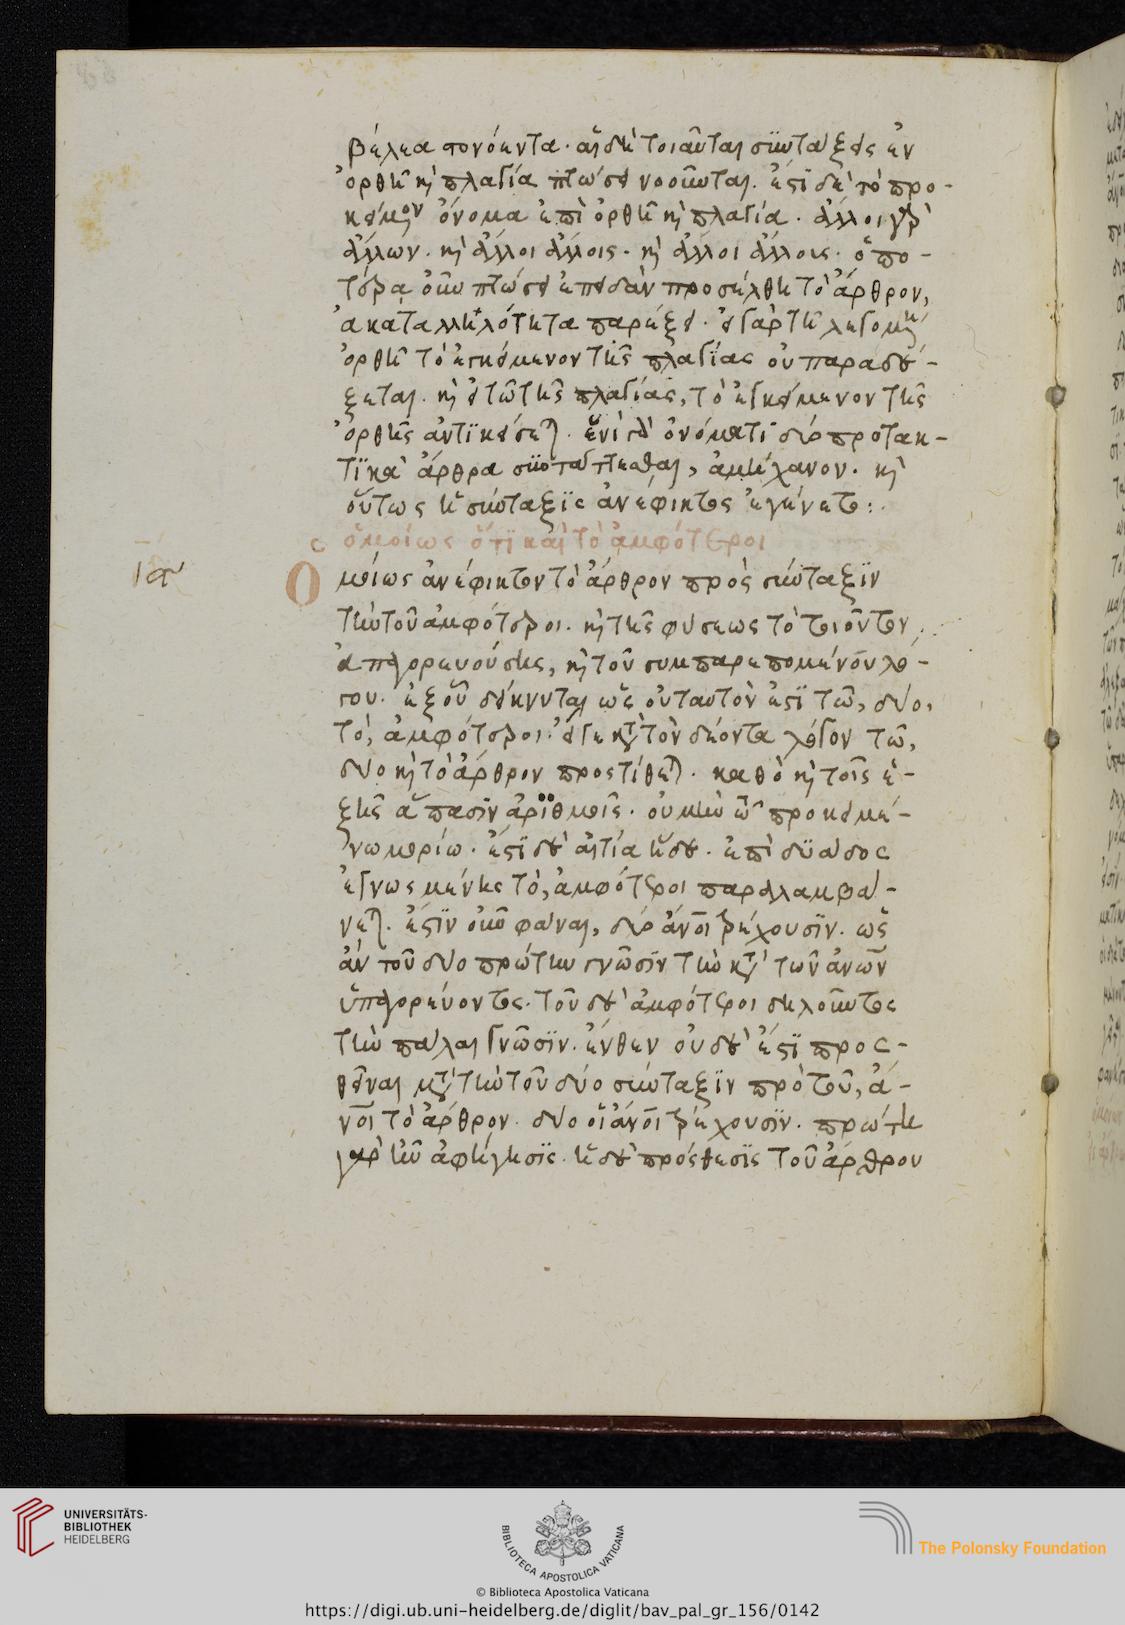 βέλεα στονόεντα. αἱ δὲ τοιαῦται συντάξεις ἐν
ὀρθῇ καὶ πλαγίᾳ πτώσει νοοῦνται. ἔστι δὲ τὸ προ-
κείμενον ὄνομα ἐπὶ ὀρθῇ καὶ πλαγίᾳ. ἄλλοι γὰρ
ἄλλων. καὶ ἄλλοι ἄλλοις. καὶ ἄλλοι ἄλλους. ὁπο-
τέρᾳ οὖν πτώσει ἐπειδὰν προσέλθῃ τὸ ἄρθρον,
ἀκαταλληλότητα παρέξει. εἰ γὰρ τῇ λεγομένῃ
ὀρθῇ τὸ ἐγκείμενον τῆς πλαγίας οὐ παραδέ-
ξεται. καὶ εἰ τῷ τῆς πλαγίας, τὸ ἐγκείμενον τῆς
ὀρθῆς ἀντικείσεται. ἑνὶ δὲ ὀνόματι δύο προτακ-
τικὰ ἄρθρα συντάττεσθαι, ἀμήχανον. καὶ
οὕτως ἡ σύνταξις ἀνέφικτος ἐγένετο:
ὁμοίως ὅτι καὶ τὸ ἀμφότεροι
Ομοίως ἀνέφικτον τὸ ἄρθρον πρὸς σύνταξιν
τὴν τοῦ ἀμφότεροι. καὶ τῆς φύσεως τὸ τοιοῦτον
ἀπαγορευούσης, καὶ τοῦ συμπαρεπομένου λό-
γου. ἐξ οὗ δείκνυται ὡς οὐ ταυτὸν ἐστὶ τῷ, δύο,
τὸ, ἀμφότεροι. εἴγε κατὰ τὸν δέοντα λόγον τῷ,
δύο καὶ τὸ ἄρθρον προστίθεται. καθὸ καὶ τοῖς ἑ-
ξῆς ἅπασιν ἀριθμοῖς. οὐ μὴν τῷ προκειμέ-
νῳ μορίῳ. ἔστι δὲ αἰτία ἥδε. ἐπὶ δυάδος
ἐγνωσμένης τὸ, ἀμφότεροι παραλαμβά-
νεται. ἔστιν οὖν φάναι, δύο ἄνθρωποι τρέχουσιν. ὡς
ἂν τοῦ δύο πρώτην γνῶσιν τὴν κατὰ τῶν ἀνθρώπων
ὑπαγορεύοντος. τοῦ δὲ ἀμφότεροι δηλοῦντος
τὴν πάλαι γνῶσιν. ἔνθεν οὐδὲ ἔστι προσ-
θεῖναι μετὰ τὴν τοῦ δύο σύνταξιν πρὸ τοῦ, ἄ-
νθρωποι τὸ ἄρθρον. δύο οἱ ἄνθρωποι τρέχουσιν. πρώτη
γὰρ ἦν ἀφήγησις. ἡ δὲ πρόσθεσις τοῦ ἄρθρου
UNIVERSITÄTS-
BIBLIOTHEK
HEIDELBERG
BIBLIOTECA APOSTOLICA VATICANA
The Polonsky Foundation
© Biblioteca Apostolica Vaticana
https://digi.ub.uni-heidelberg.de/diglit/bav_pal_gr_156/0142